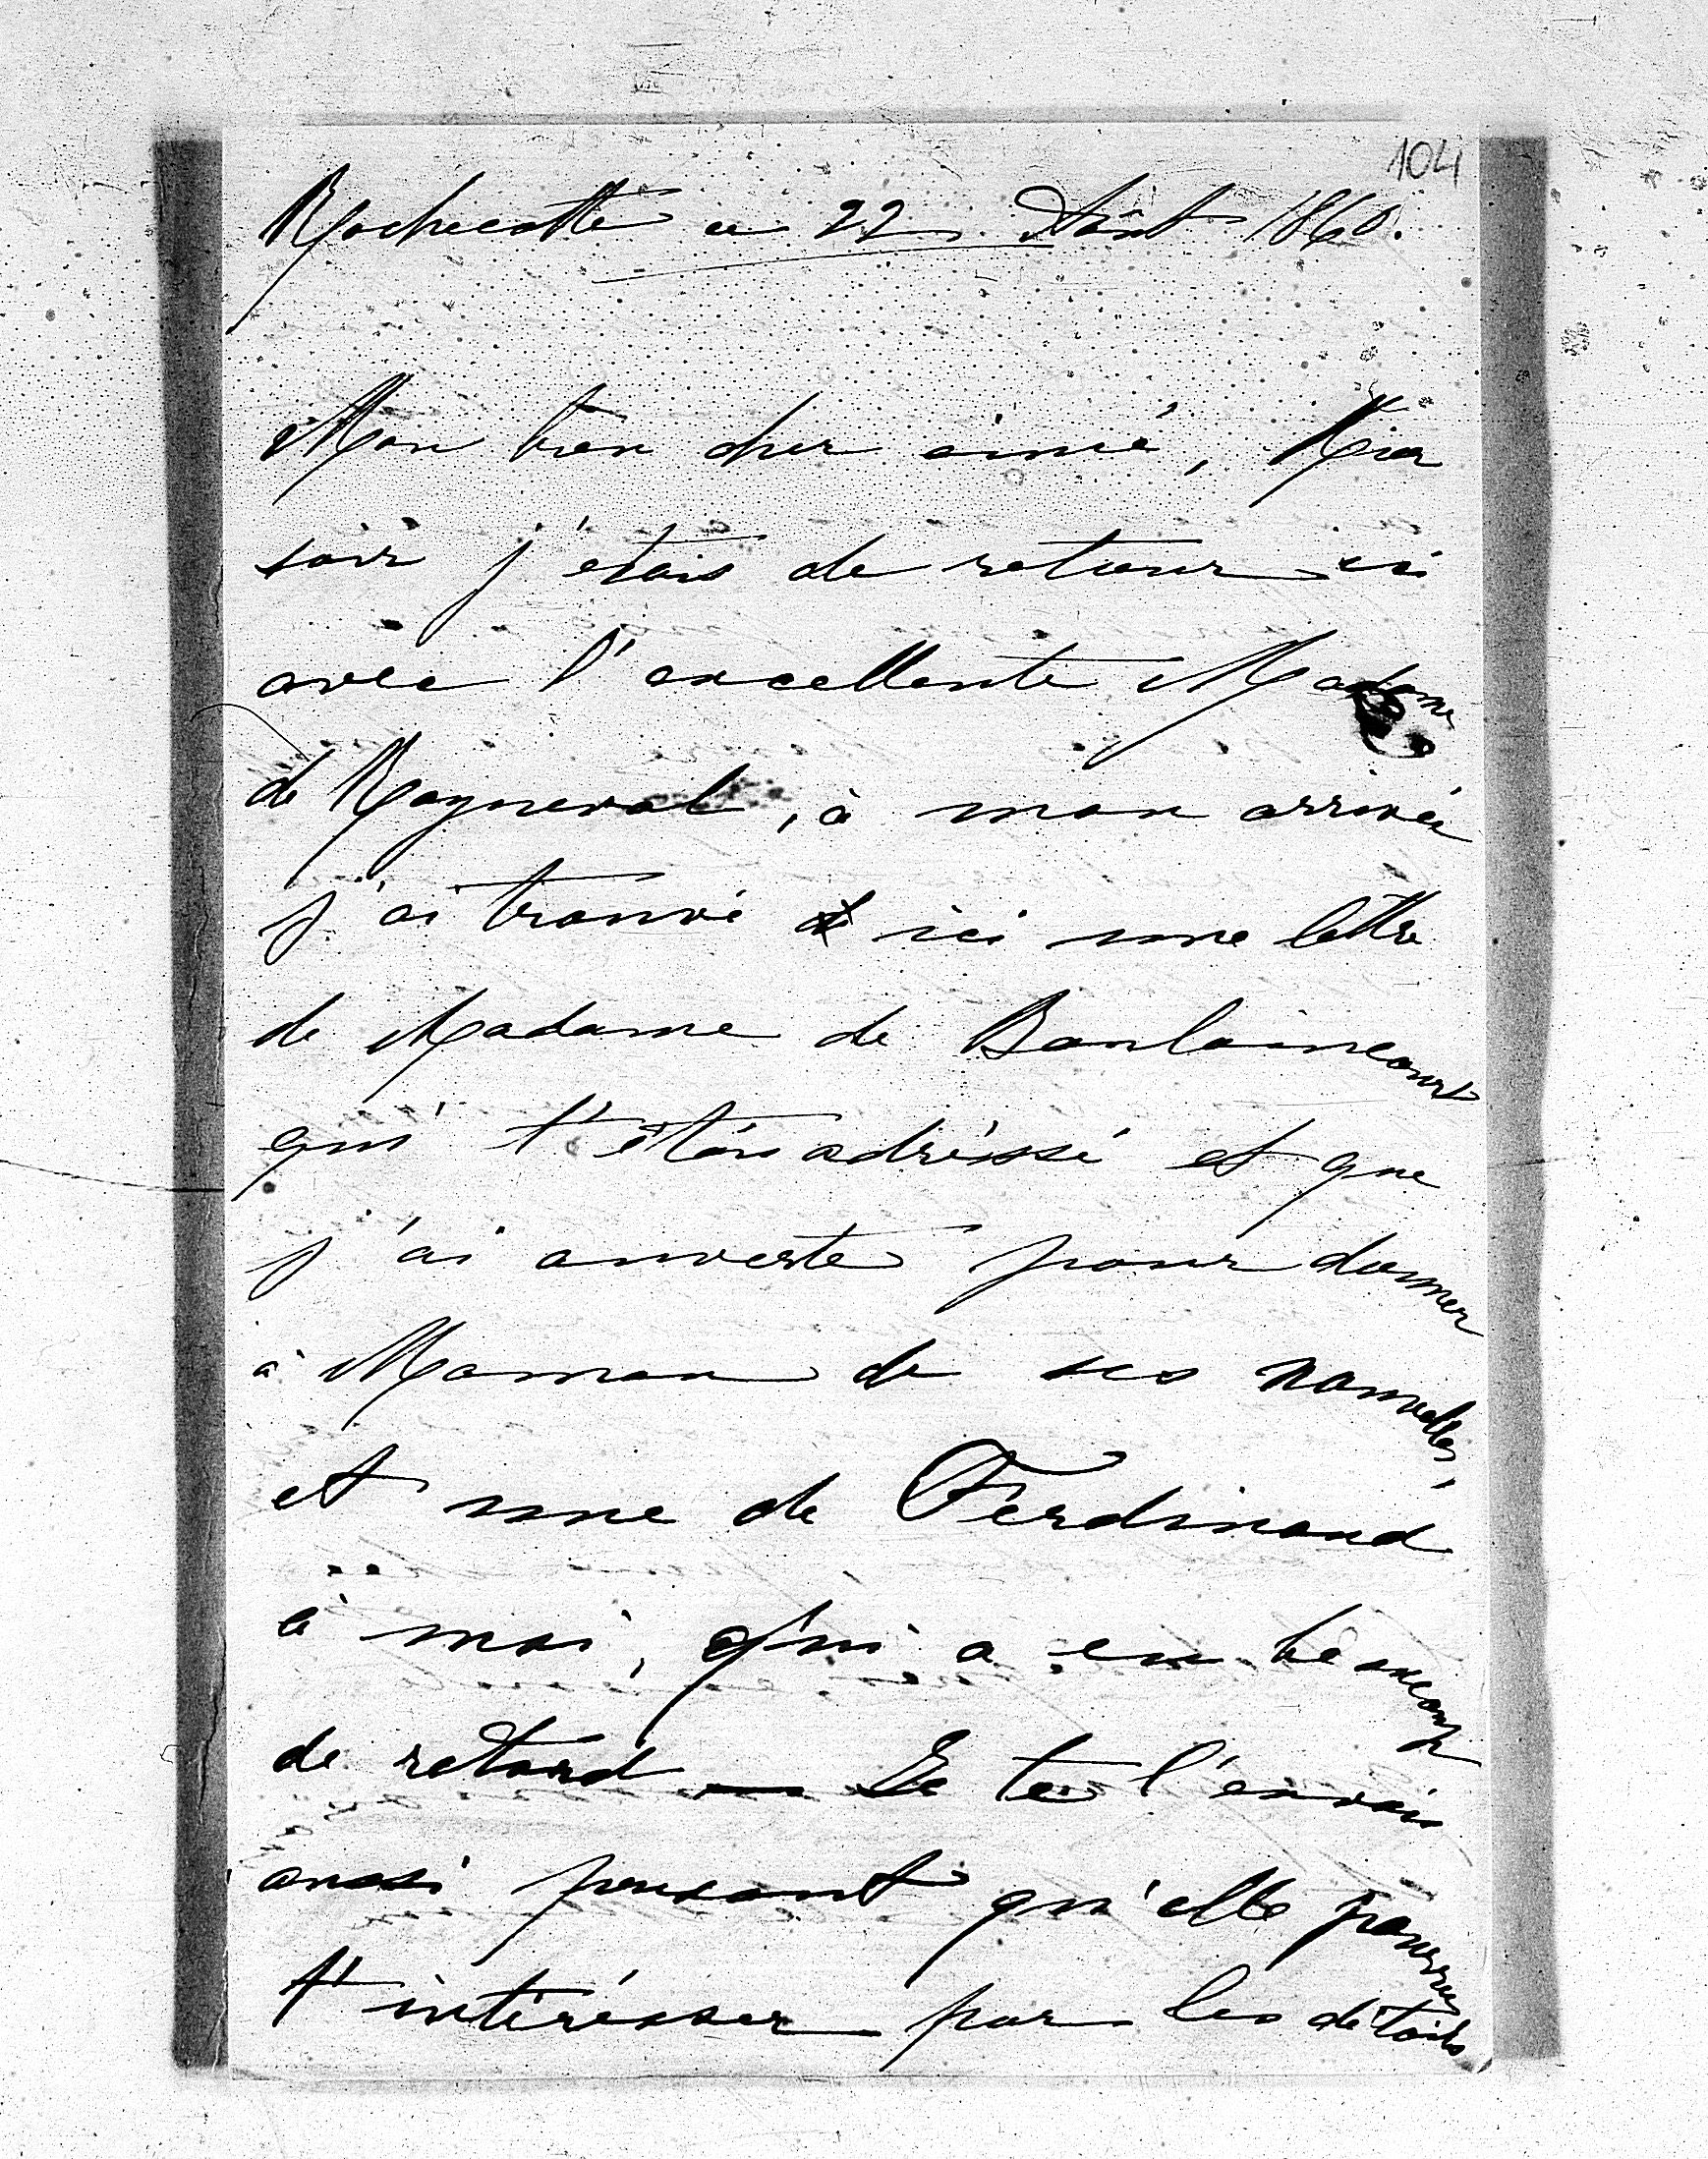 104
Rochecotte ce 22 Août 1860.
Mon bien cher aimé, Hier
soir j'étais de retour ici
avec l'excellente Madame
de Rayneval, à mon arrivée
j'ai trouvé ici une lettre
de Madame de Beaulaincourt
qui t'étais adréssé et que
j'ai ouverte pour donner
à Maman de ses nouvelles,
et une de Ferdinand
à moi, qui a eu beaucoup
de retard — Je te l'envois
aussi pensant qu'elle pourrais
t'intéresser par les détails